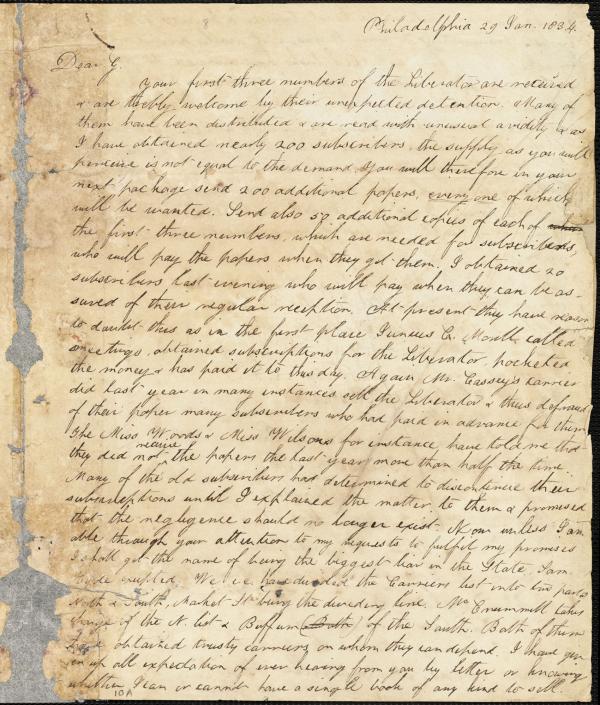 Philadelphia 29 Jan. 1834.
Dear G.
Your first three numbers of the Liberator are received
& are trebly welcome by their unexpected detention. Many of
them have been distributed & are read with unusual avidity & as
I have obtained nearly 200 subscribers, the supply, as you will
perceive is not equal to the demand. You will therefore in your
next package send 200 additional papers, every one of which
will be wanted. Send also 50 additional copies of each of
the first three numbers, which are needed for subscribers,
who will pay the papers when they get them. I obtained 20
subscribers last evening who will pay when they can be as-
sured of their regular reception. At present they have reason
to doubt this as in the first place Junius C. Morell called
meetings, obtained subscriptions for the Liberator, pocketed
the money & has paid it to this day. Again, Mr. Cassey's carrier
did last year in many instances sell the Liberator & thus defraud
of their paper many subscribers who had paid in advance for them
The Miss Woods & Miss Wilsons for instance have told me that
they did not receive the papers the last year more than half the time.
Many of the old subscribers had determined to discontinue their
subscriptions until I explained the matter to them & promised
that the negligence should no longer exist. Now unless I am
able through your attention to my requests to fulfil my promises
I shall get the name of being the biggest liar in the State. I am
We have divided the Carriers list into two parts
North & South, Market St being the dividing line. Mr Crummell takes
charge of the N. list & Buffum (Both) of the South. Both of them
have obtained trusty carriers, on whom they can depend. I have giv-
en up all expectation of ever hearing from you by letter or knowing
whether I can or cannot have a single book of any kind to sell.
10A